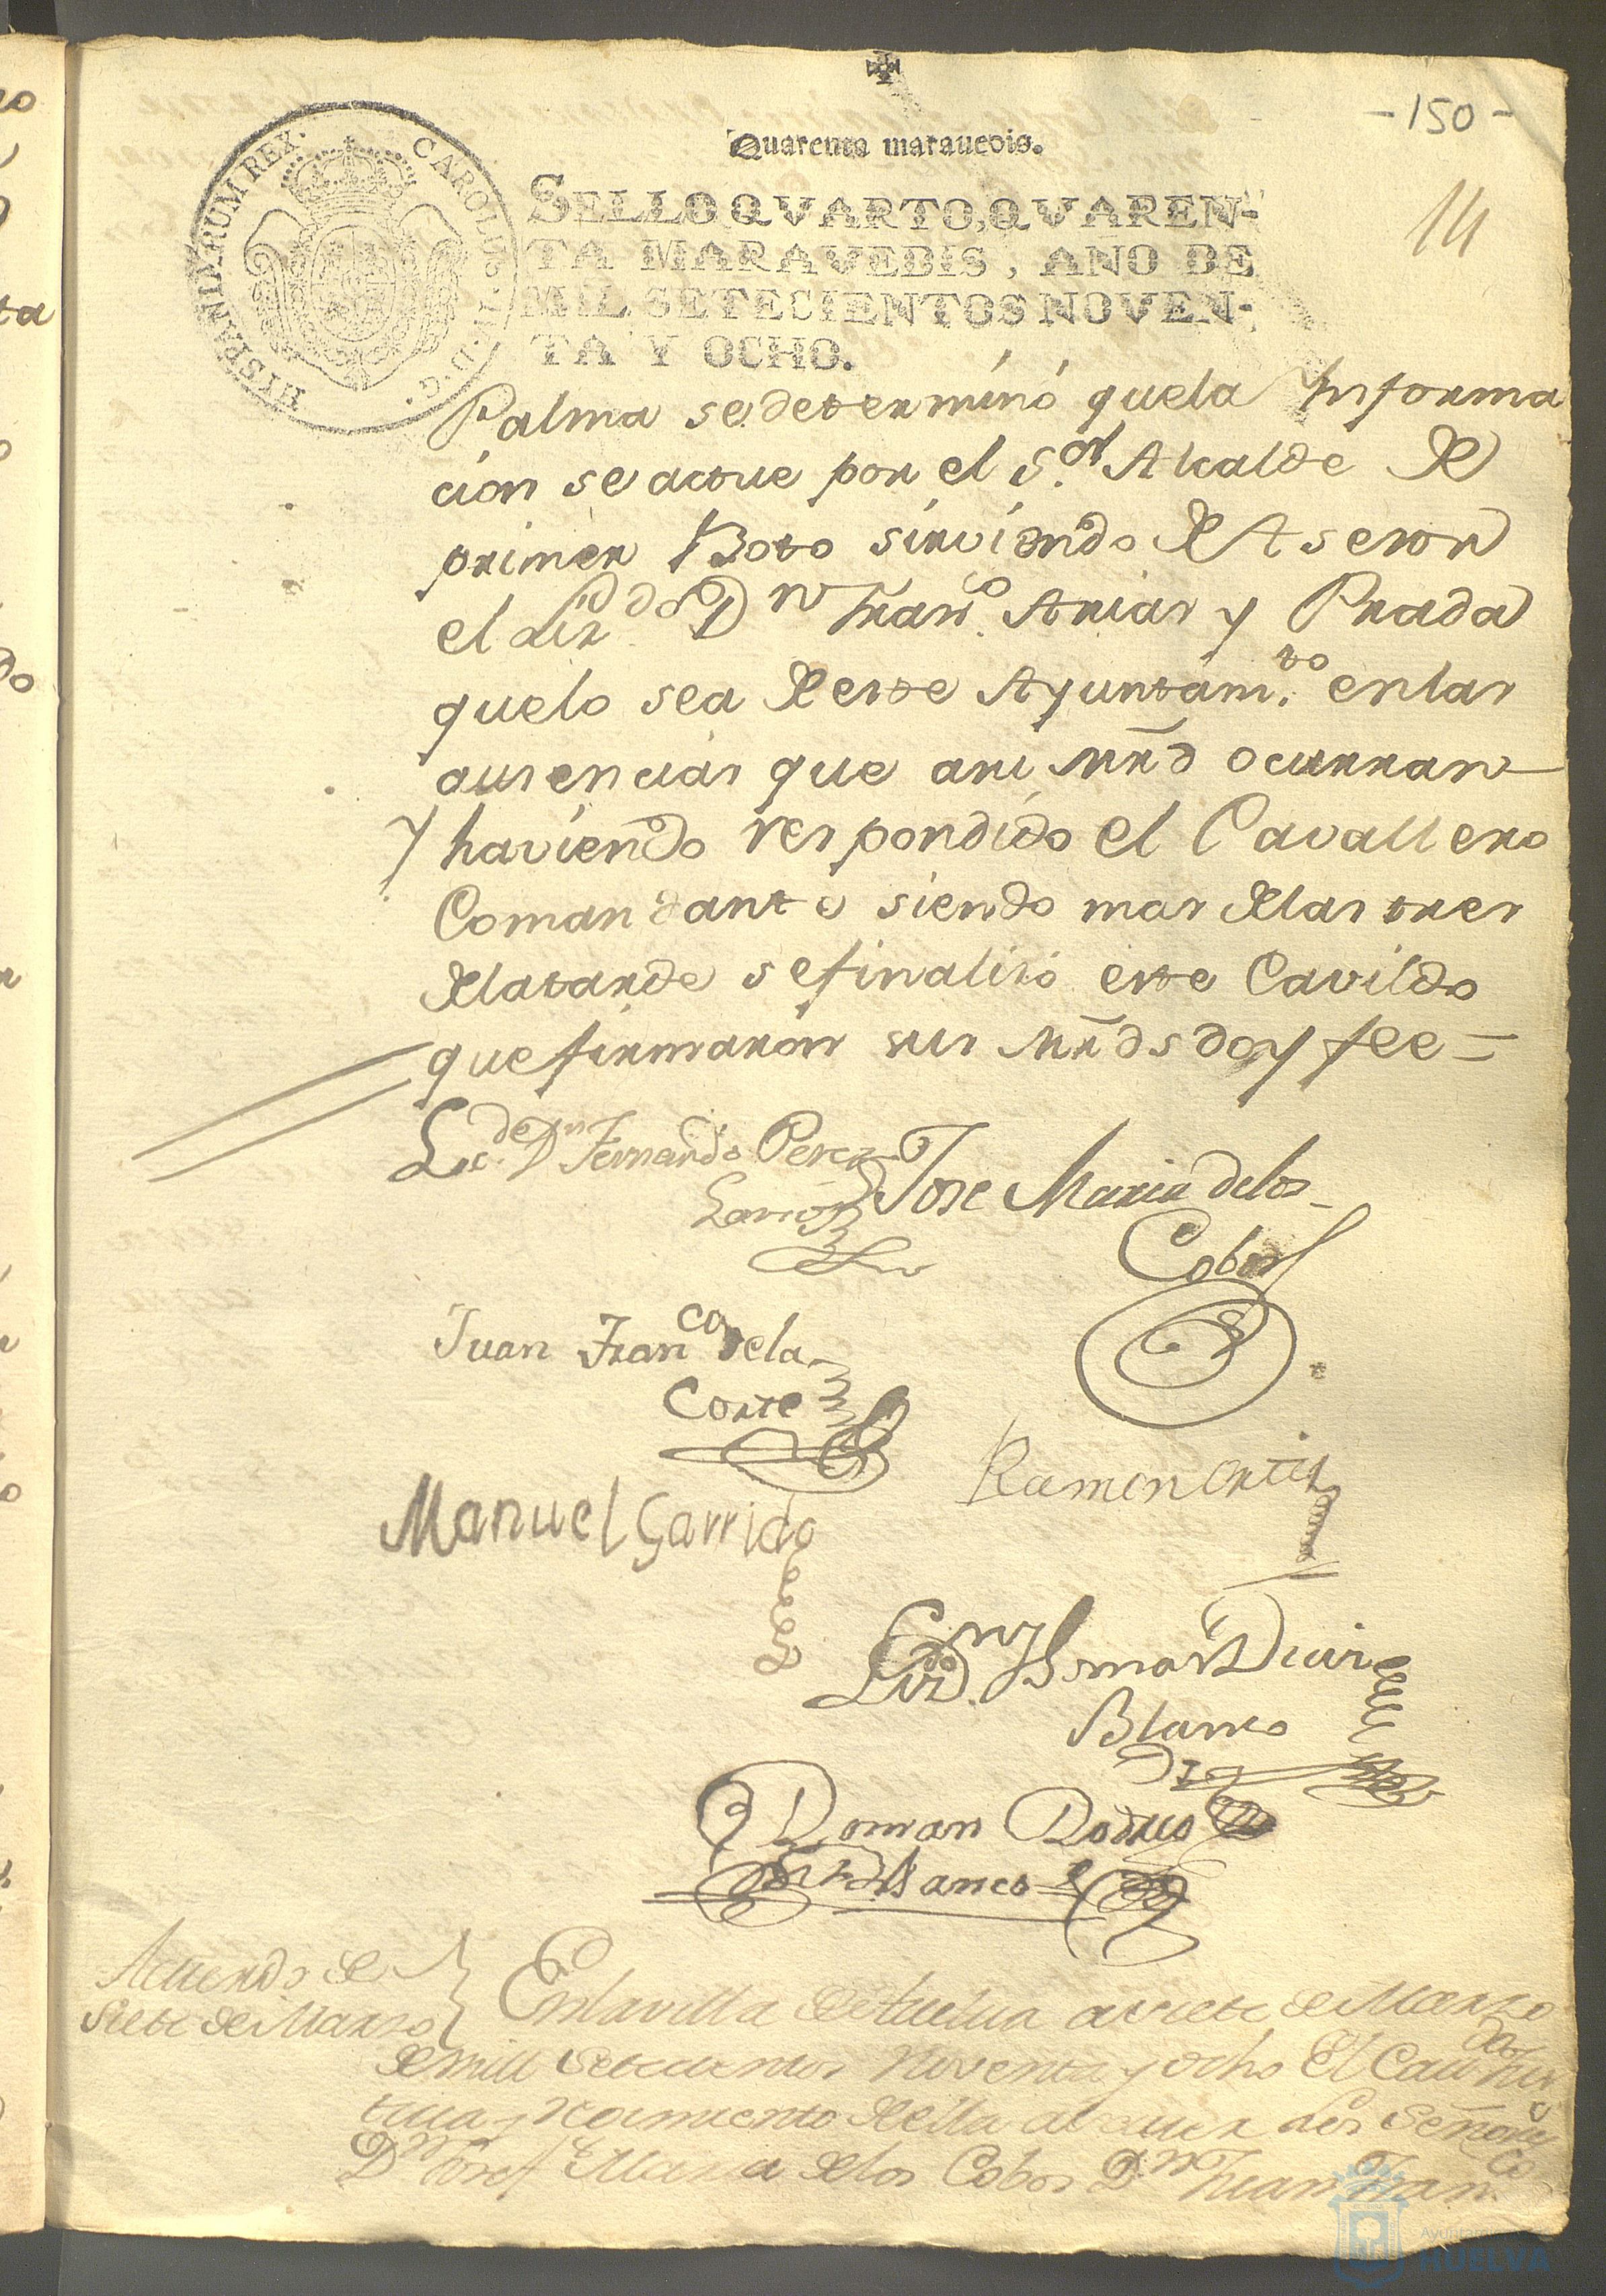 -150-
14
Quarenta maravedis.
HYSPANIARUM REX. CAROLUS. IV. D. G.
SELLO QVARTO, QVAREN-
TA MARAVEDIS, AÑO DE
MIL SETECIENTOS NOVEN-
TA Y OCHO.
Palma se determinó quela Informa
cion se actue por el S.or Alcalde de
primer Boto sirviendo de Asesor
el Liz.do Dn Fran.co Arias y Prada
quelo sea de este Ayuntam.to enlas
ausencias que asu Mrd ocurran
y haviendo respondido el Cavallero
Comandante siendo mas delas tres
delatarde sefinalizó este Cavildo
quefirmaron sus Mrds doy fee =
Lic.do Dn Fernando Perez
Jose Maria delos
Cobos
Juan Fran.co dela
Corte
Ramon Ortiz
Manuel Garrido
Blanco
Roman Rodrig
Blanco
Acuerdo de
Siete de Marzo
Enlavilla de Huelva a siete de Marzo
demill setecientos noventa y ocho El Cau.do Jus
ticia y regimiento de ella a saver los Señores
Dn Josef Maria delos Cobos Dn Juan Fran.co
Ayuntamiento
HUELVA